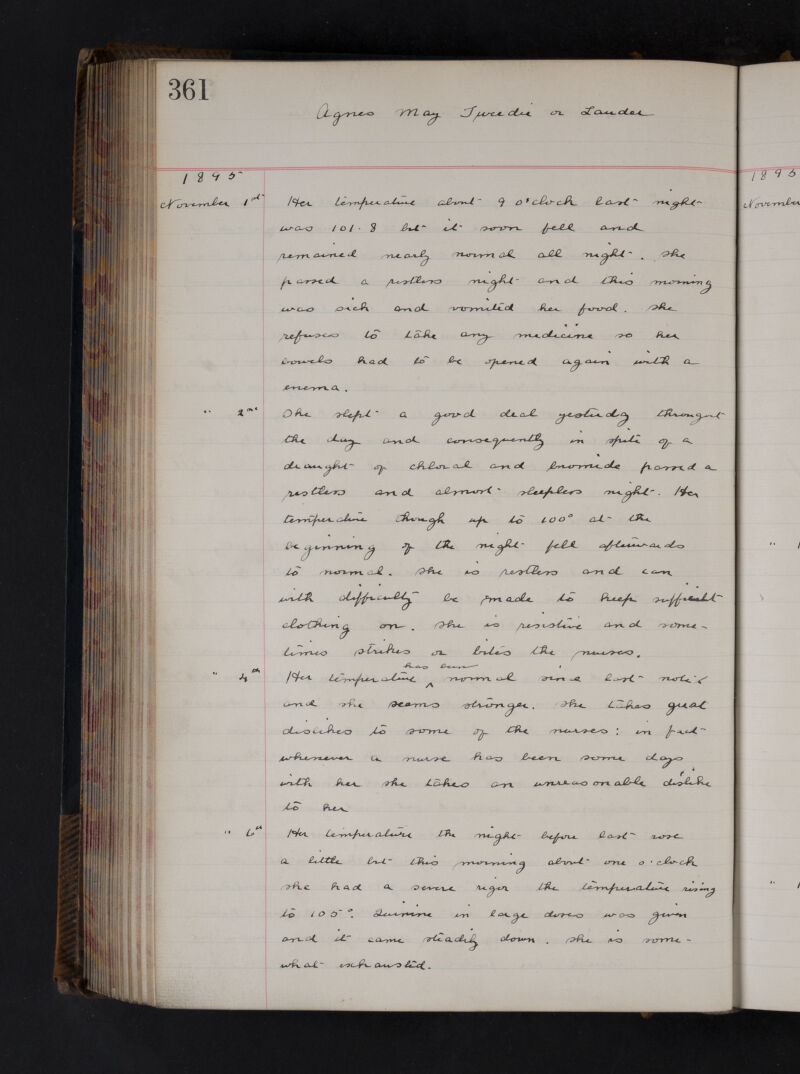 361
Agnes May Tweedie or Lauder
1895
November 1st Her temperature about 9 o'clock last night
was 101.8 but it soon fell and
remained nearly normal all night. She
passed a restless night and this morning
was sick and vomited her food. She
refuses to take any medicine so her
bowels had to be opened again with a
enema.
" 2nd She slept a good deal yesterday througout
the day and consequently in spite of a
draught of chloral and bromide passed a
restless and almost sleepless night. Her
temperature though up to 100° at the
beginning of the night fell afterwards
to normal. She is restless and can
with difficulty be made to keep sufficient
clothing on. She is resistive and some-
times strikes or bites the nurses.
has been
" 4th Her temperature ‸ normal since last note
and she seems stronger. She takes great
dislikes to some of the nurses: in fact
whenever a nurse has been some days
with her she takes an unreasonable dislike
to her
" 6th Her temperature the night before last rose
a little but this morning about one o'clock
she had a severe rigor the temperature rising
to 105°. Quinine in large doses was given
and it came steadily down. She is some-
what exhausted.
1895
November
"
"